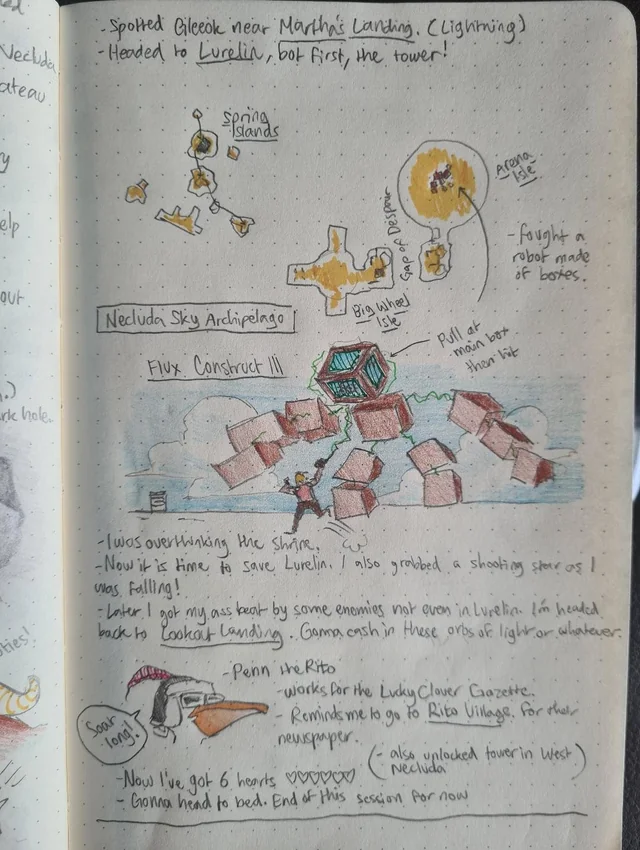 - Spotted Gleeok near Martha's Landing. (Lightning)
- Headed to Lurelin, but first, the tower!
Necluda
ateau
Spring
Islands
Arena
Isle
Gap of Despair
- fought a
robot made
of boxes.
Big Wheel
Isle
Necluda Sky Archipelago
Pull at
main box
then hit
Flux Construct III
- I was overthinking the shrine.
- Now it is time to save Lurelin. I also grabbed a shooting star as I
was falling!
- Later I got my ass beat by some enemies not even in Lurelin. I'm headed
back to Lookout Landing. Gonna cash in these orbs of light or whatever.
- Penn the Rito
- works for the Lucky Clover Gazette.
- Reminds me to go to Rito Village. For their
newspaper.
Soar
long!
(- also unlocked tower in West
Necluda)
- Now I've got 6 hearts ♡♡♡♡♡♡
- Gonna head to bed. End of this session for now
ry
elp
out
.)
rk hole.
oties!